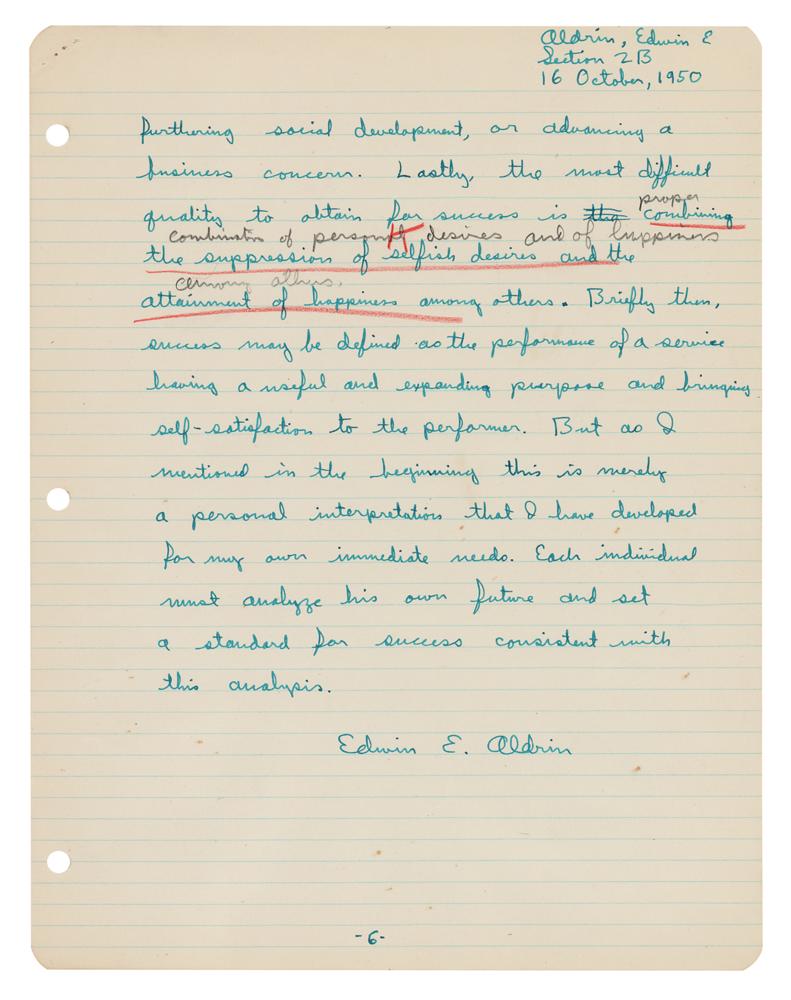 Aldrin, Edwin E
Section 2B
16 October, 1950
furthering social development, or advancing a
business concern. Lastly, the most difficult
proper
quality to obtain for success is the combining
combination of personal desires and of happiness
the suppression of selfish desires and the
among others.
attainment of happiness among others. Briefly then,
success may be defined as the performance of a service
having a useful and expanding purpose and bringing
self-satisfaction to the performer. But as I
mentioned in the beginning this is merely
a personal interpretation that I have developed
for my own immediate needs. Each individual
must analyze his own future and set
a standard for success consistent with
this analysis.
Edwin E. Aldrin
-6-